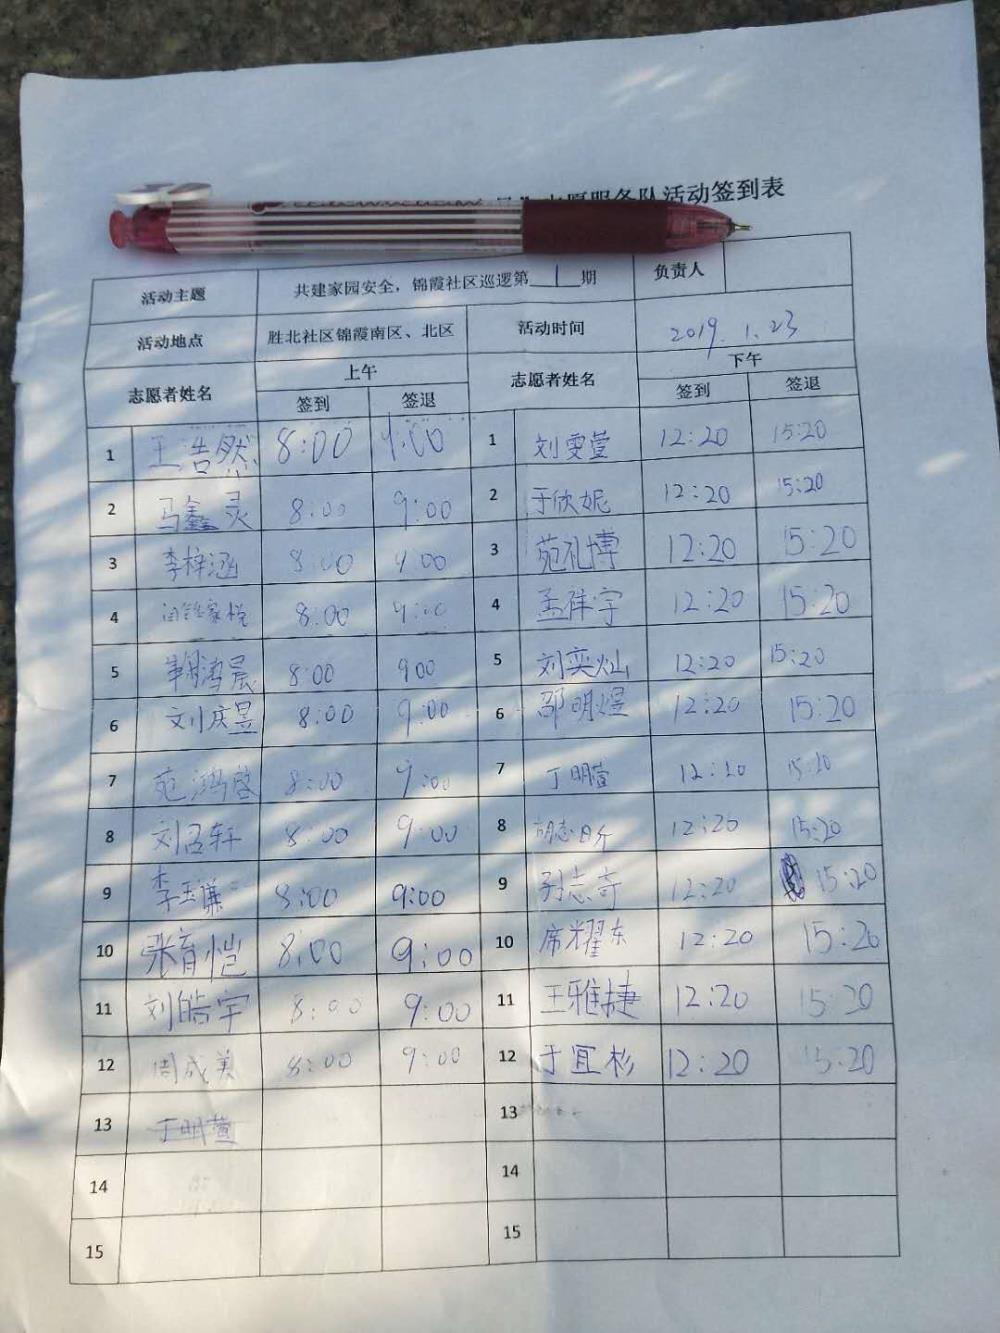 志愿服务队活动签到表
活动主题 共建家园安全，锦霞社区巡逻第1期 负责人
活动地点 胜北社区锦霞南区、北区 活动时间 2019.1.23
志愿者姓名 上午 志愿者姓名 下午
签到 签退 签到 签退
1 王浩然 8:00 9:00 1 刘雯萱 12:20 15:20
2 马鑫灵 8:00 9:00 2 于欣妮 12:20 15:20
3 李梓涵 8:00 9:00 3 苑礼博 12:20 15:20
4 8:00 9:00 4 孟祥宇 12:20 15:20
5 8:00 900 5 刘奕灿 12:20 15:20
6 刘庆昱 8:00 9:00 6 邵明煜 12:20 15:20
7 苑鸿啓 8:00 9:00 7 丁明萱 12:20 15:20
8 刘孟轩 8:00 9:00 8 胡志昕 12:20 15:20
9 李玉谦 8:00 9:00 9 志奇 12:20 15:20
10 张育恺 8:00 9:00 10 席耀东 12:20 15:20
11 刘皓宇 8:00 9:00 11 王雅捷 12:20 15:20
12 周成美 8:00 9:00 12 于宜杉 12:20 15:20
13 丁明萱 13
14 14
15 15